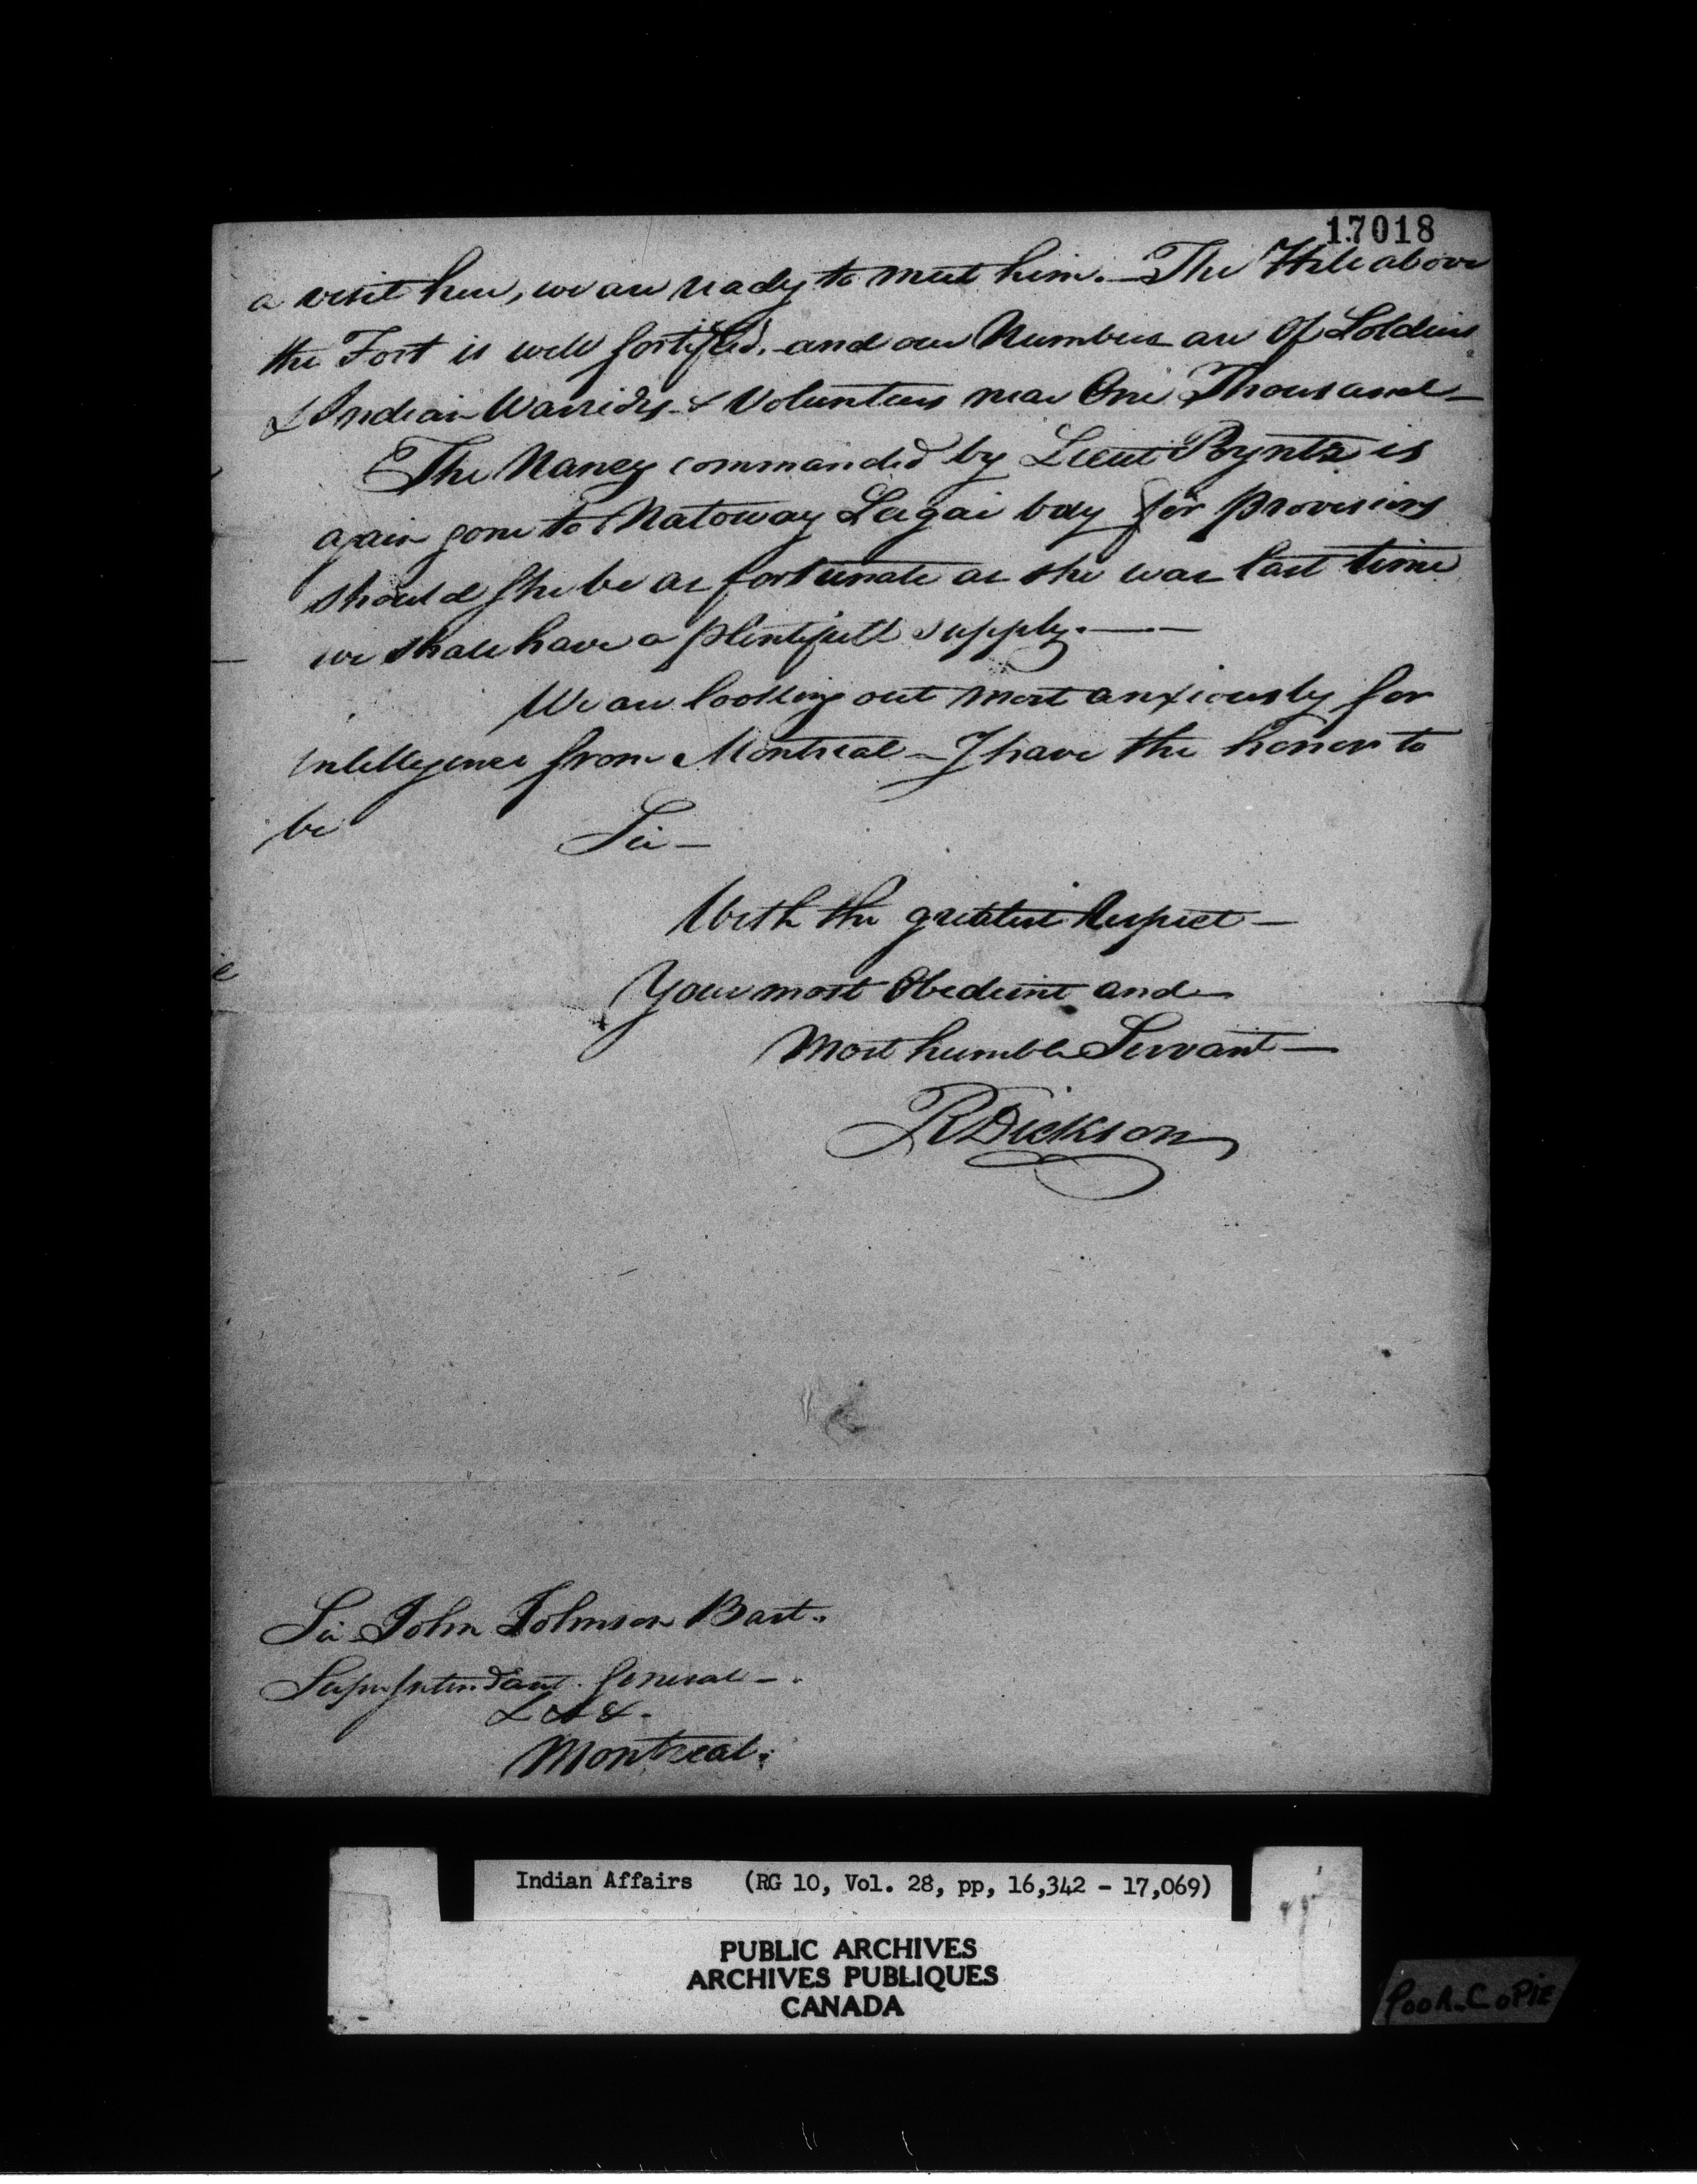 17018
a visit here, we are ready to meet him. – The Hill above
the Fort is well fortified. and our Numbers are Of Soldiers
& Indian Warriors & Volunteers near One Thousand –
The Nancy commanded by Lieut Poyntz is
again gone to Natoway Sagai bay for provisions
should She be as fortunate as she was last time
we shall have a plentifull supply. —
We are looking out most anxiously for
intelligence from Montreal – I have the honor to
be Sir –
With the greatest Respect –
Your most Obedient and
Most humble Servant –
RDickson
Sir John Johnson Bart.
Superintendant General –
& & &.
Montreal.
Indian Affairs (RG 10, Vol. 28, pp, 16,342 - 17,069)
PUBLIC ARCHIVES
ARCHIVES PUBLIQUES
CANADA
POOR COPIE